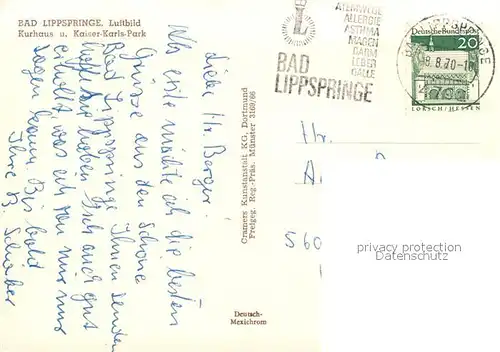 BAD LIPPSPRINGE. Luftbild
Kurhaus u. Kaiser-Karls-Park
Liebe Hr. Berger!
Wo erste möchte ich die besten
Grüsse aus den schöne
Bad Lippspringe Ihnen senden
ich auch gut
erholt was ich von mir nur
sagen kann Bis bald
Ihre B. Schaber
Cramers Kunstanstalt KG, Dortmund
Freigeg. Reg.-Präs. Münster 3169/66
Deutsch-
Mexichrom
ATEMWEGE
ALLERGIE
ASTHMA
MAGEN
DARM
LEBER
GALLE
BAD
LIPPSPRINGE
L
BAD LIPPSPRINGE
8.70-1
Deutsche Bundespost
20
LORSCH/HESSEN
Hr.
A
560
privacy protection
Datenschutz